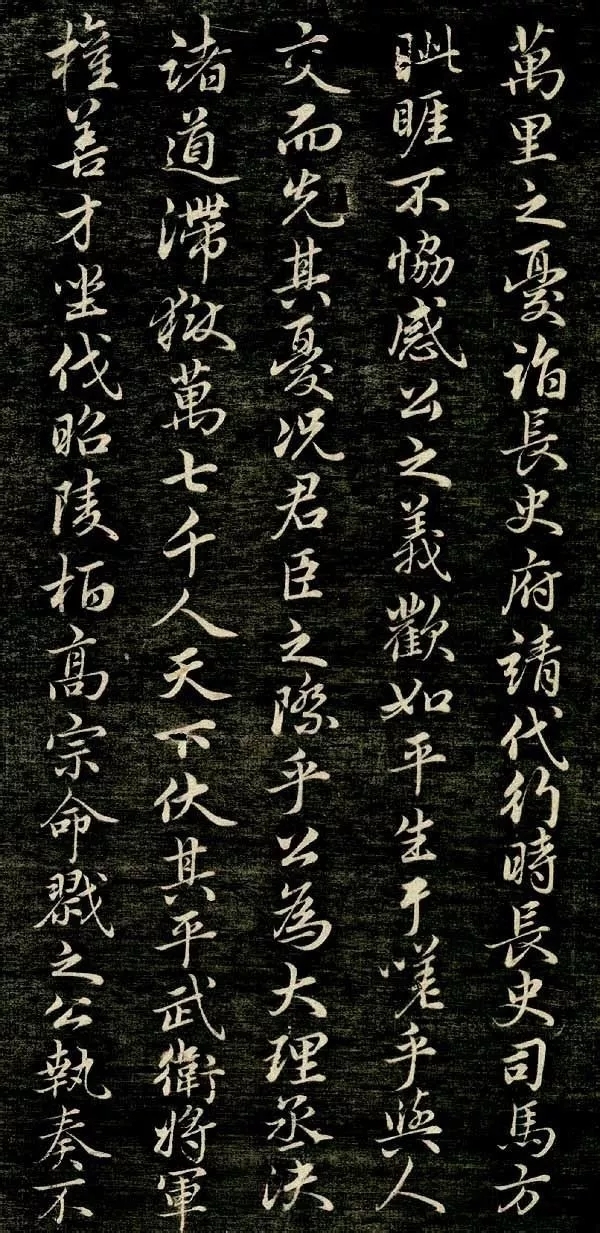 萬里之憂詣長史府請代行時長史司馬方
眦睢不恊感公之義歡如平生于嗟乎與人
交而先其憂况君臣之際乎公為大理丞决
諸道滯獄萬七千人天下伏其平武衛將軍
權善才坐伐昭陵栢高宗命戮之公執奏不